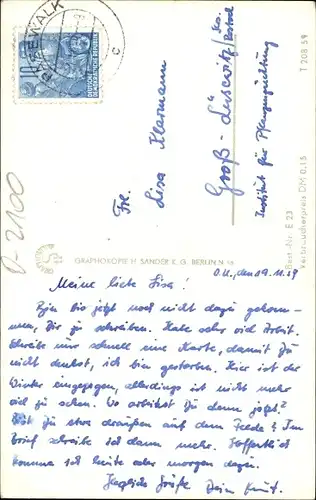 PASEWALK
10
DEUTSCHE
DEMOKRATISCHE REPUBLIK
c
Frl.
Lisa Klarmann
Groß-Lüsewitz/
Kr. Rostock
Institut für Pflanzenzüchtung
T 208 59
Best.-Nr. E 23
Verbraucherpreis DM 0,15
D-2100
GRAPHOKOPIE H. SANDER K. G. BERLIN N 55
O.U., den 19.11.59
Meine liebe Lisa!
Bin bis jetzt noch nicht dazu gekom-
men, Dir zu schreiben. Habe sehr viel Arbeit.
Schreibe nur schnell eine Karte, damit Du
nicht denkst, ich bin gestorben. Hier ist der
Winter eingezogen, allerdings ist nicht mehr
viel zu sehen. Wo arbeitest Du denn jetzt?
Bist Du etwa draußen auf dem Felde? Im
Brief schreibe ich dann mehr. Hoffentlich
komme ich heute oder morgen dazu.
Herzliche Grüße Dein Knut.